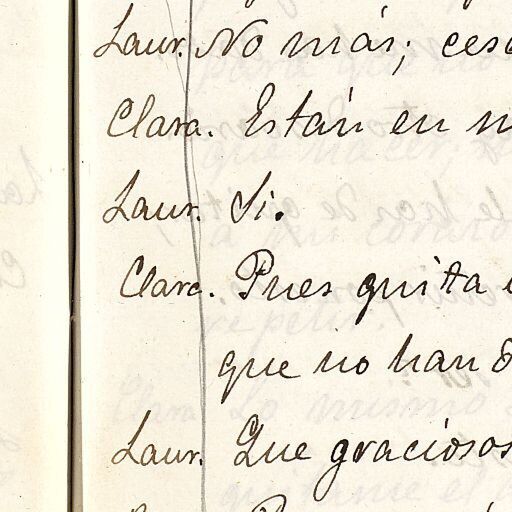 Laur. No más; ces
Clara. Están en m
Laur. Si.
Clara. Pues quita
que no han d
Laur. Que graciosos